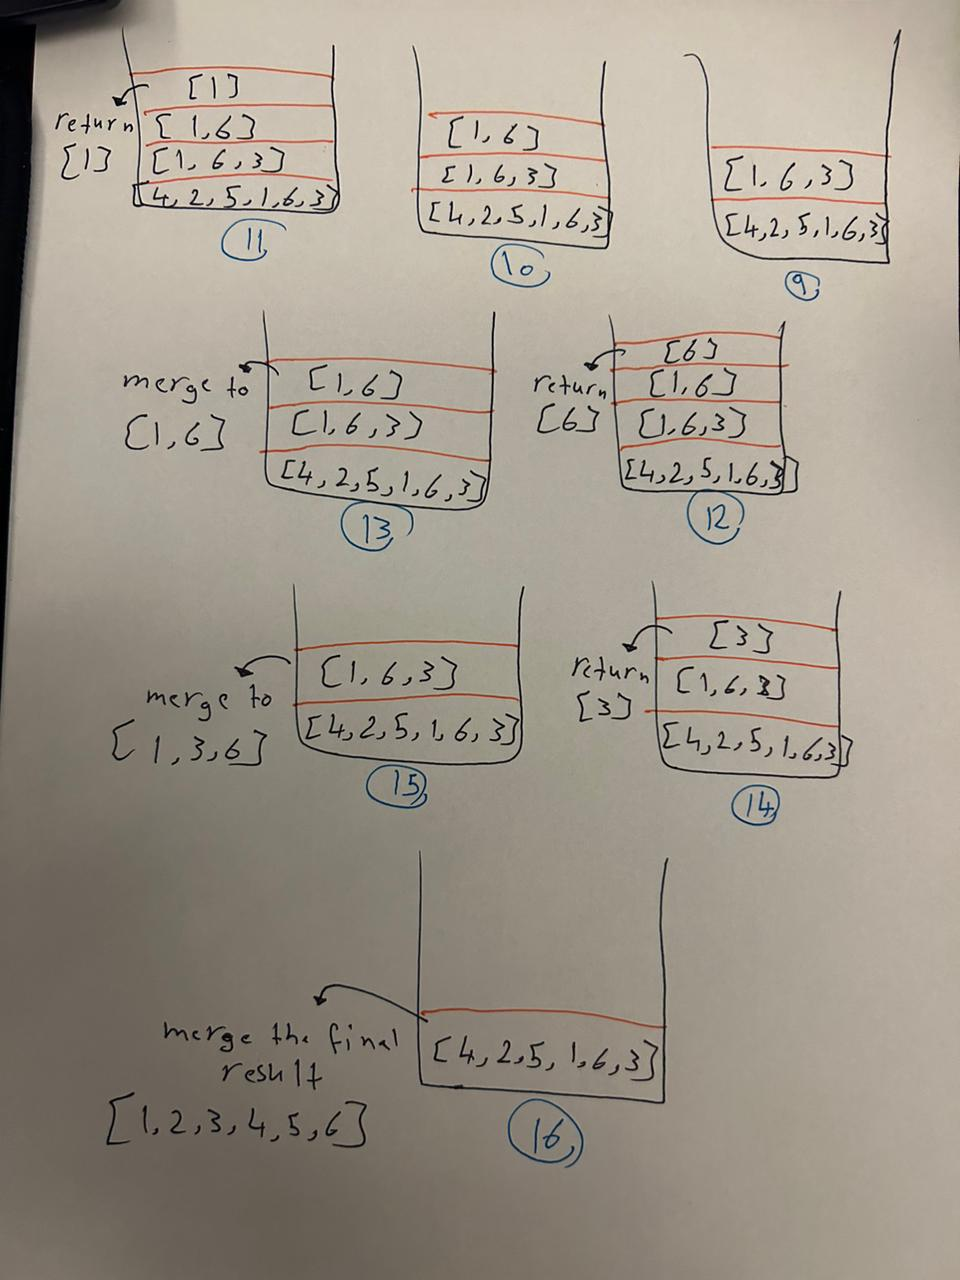 [1]
return
[1]
[1,6]
[1,6,3]
[4,2,5,1,6,3]
11
[1,6]
[1,6,3]
[4,2,5,1,6,3]
10
[1,6,3]
[4,2,5,1,6,3]
9
merge to
[1,6]
[1,6]
[1,6,3]
[4,2,5,1,6,3]
13
return
[6]
[6]
[1,6]
[1,6,3]
[4,2,5,1,6,3]
12
merge to
[1,3,6]
[1,6,3]
[4,2,5,1,6,3]
15
return
[3]
[3]
[1,6,3]
[4,2,5,1,6,3]
14
merge the final
result
[1,2,3,4,5,6]
[4,2,5,1,6,3]
16